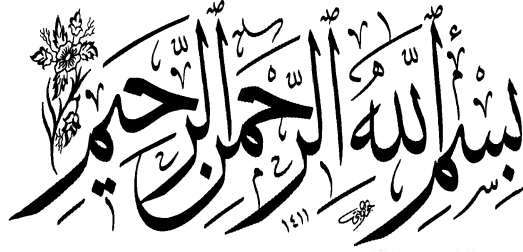 بسم الله الرحمن الرحيم
١٤١١